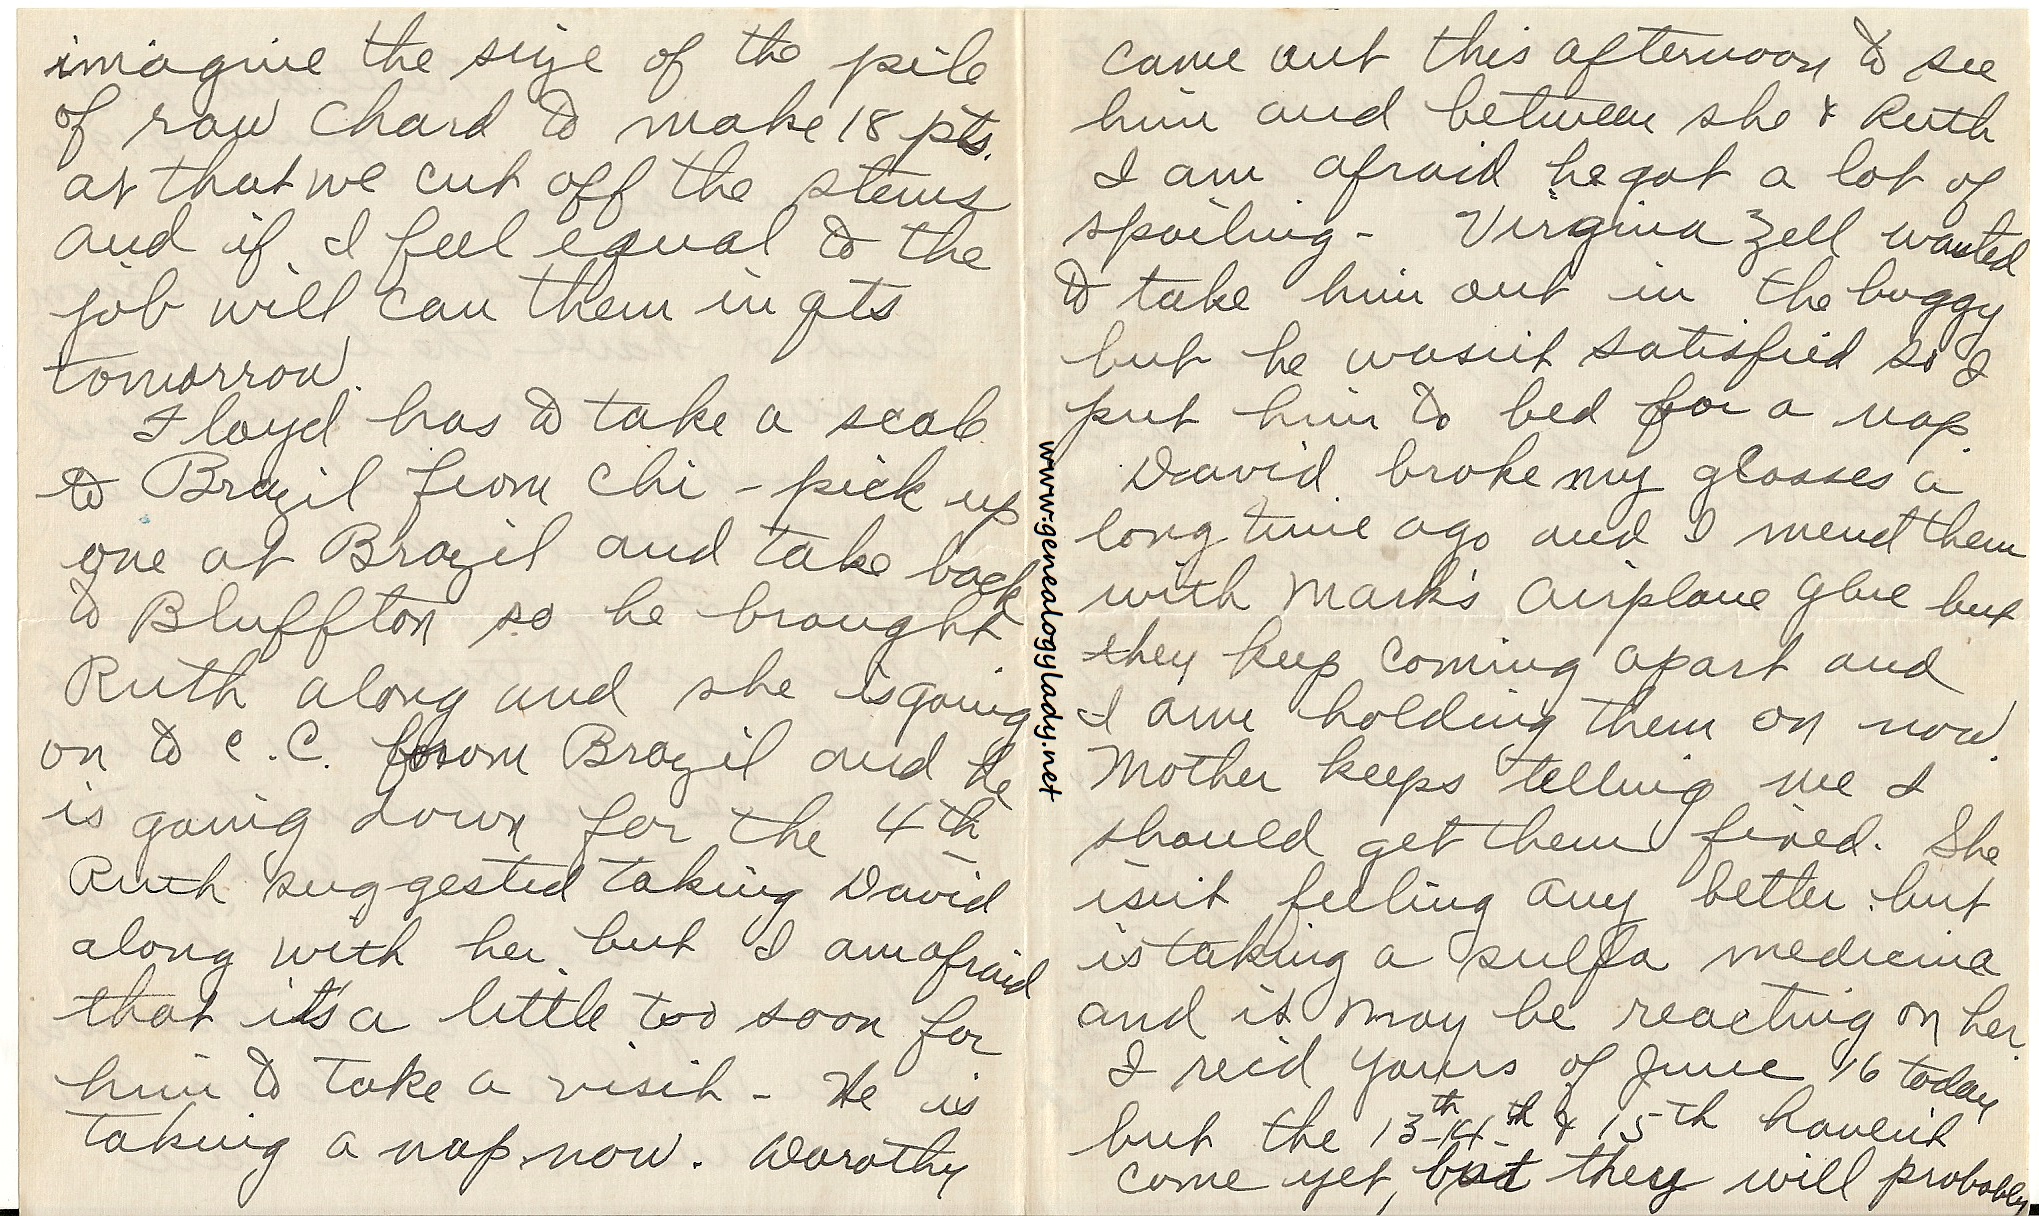 imagine the size of the pile
of raw chard to make 18 pts.
at that we cut off the stems
and if I feel equal to the
job will can them in qts
tomorrow.
Floyd has to take a scale
to Brazil from Chi - pick up
one at Brazil and take back
to Bluffton so he brought
Ruth along and she is going
on to C.C. from Brazil and he
is going down for the 4th
Ruth suggested taking David
along with her but I am afraid
that it's a little too soon for
him to take a visit - He is
taking a nap now. Dorothy
came out this afternoon to see
him and between she & Ruth
I am afraid he got a lot of
spoiling - Virginia Zell wanted
to take him out in the buggy
but he wasn't satisfied so I
put him to bed for a nap.
David broke my glasses a
long time ago and I mend them
with Mark's airplane glue but
they keep coming apart and
I am holding them on now.
Mother keeps telling me I
should get them fixed. She
isn't feeling any better but
is taking a sulfa medicine
and it may be reacting on her.
I rec'd yours of June 16 today
but the 13th-14th & 15th haven't
come yet, but they will probably
www.genealogylady.net